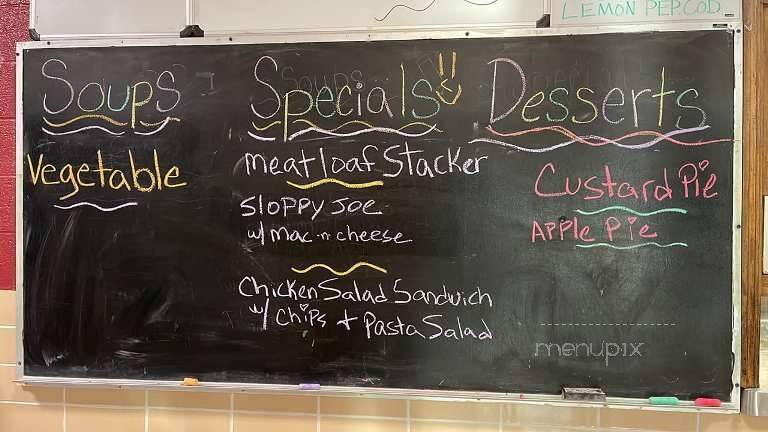 LEMON PEP.COD
Soups
Vegetable
Specials
meatloaf Stacker
Sloppy Joe
w/ mac n cheese
Chicken Salad Sandwich
w/ Chips + Pasta Salad
Desserts
Custard Pie
Apple Pie
menupix